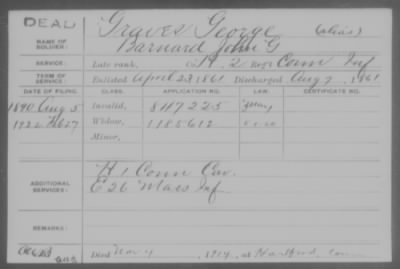 DEAD
Graves George (alias)
NAME OF SOLDIER:
Barnard John G
SERVICE: Late rank, Co. H. 2 Reg't Conn Inf
TERM OF SERVICE: Enlisted April 23 1861 Discharged Aug 7, 1861
DATE OF FILING. CLASS. APPLICATION NO. LAW. CERTIFICATE NO.
1890 Aug 5 Invalid, 817225
1922 Feb 27 Widow, 1185612
Minor,
ADDITIONAL SERVICES:
H 1 Conn Cav.
E 26 Mass Inf
REMARKS:
Died Nov 4, 1914, at Hartford, Conn